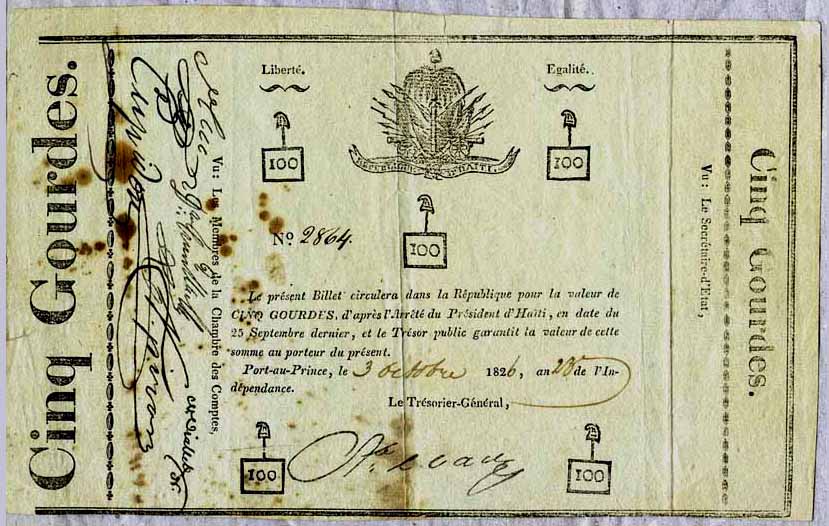 Cinq Gourdes.
Vu: Les Membres de la Chambre des Comptes,
Liberté.
Egalité.
RÉPUBLIQUE D'HAITI
100
100
100
No. 2864.
Le présent Billet circulera dans la République pour la valeur de
CINQ GOURDES, d'après l'Arrêté du Président d'Haïti, en date du
25 Septembre dernier, et le Trésor public garantit la valeur de cette
somme au porteur du présent.
Port-au-Prince, le 3 octobre 1826, an 23e de l'In-
dépendance.
Le Trésorier-Général,
100
100
Vu: Le Secrétaire-d'Etat,
Cinq Gourdes.